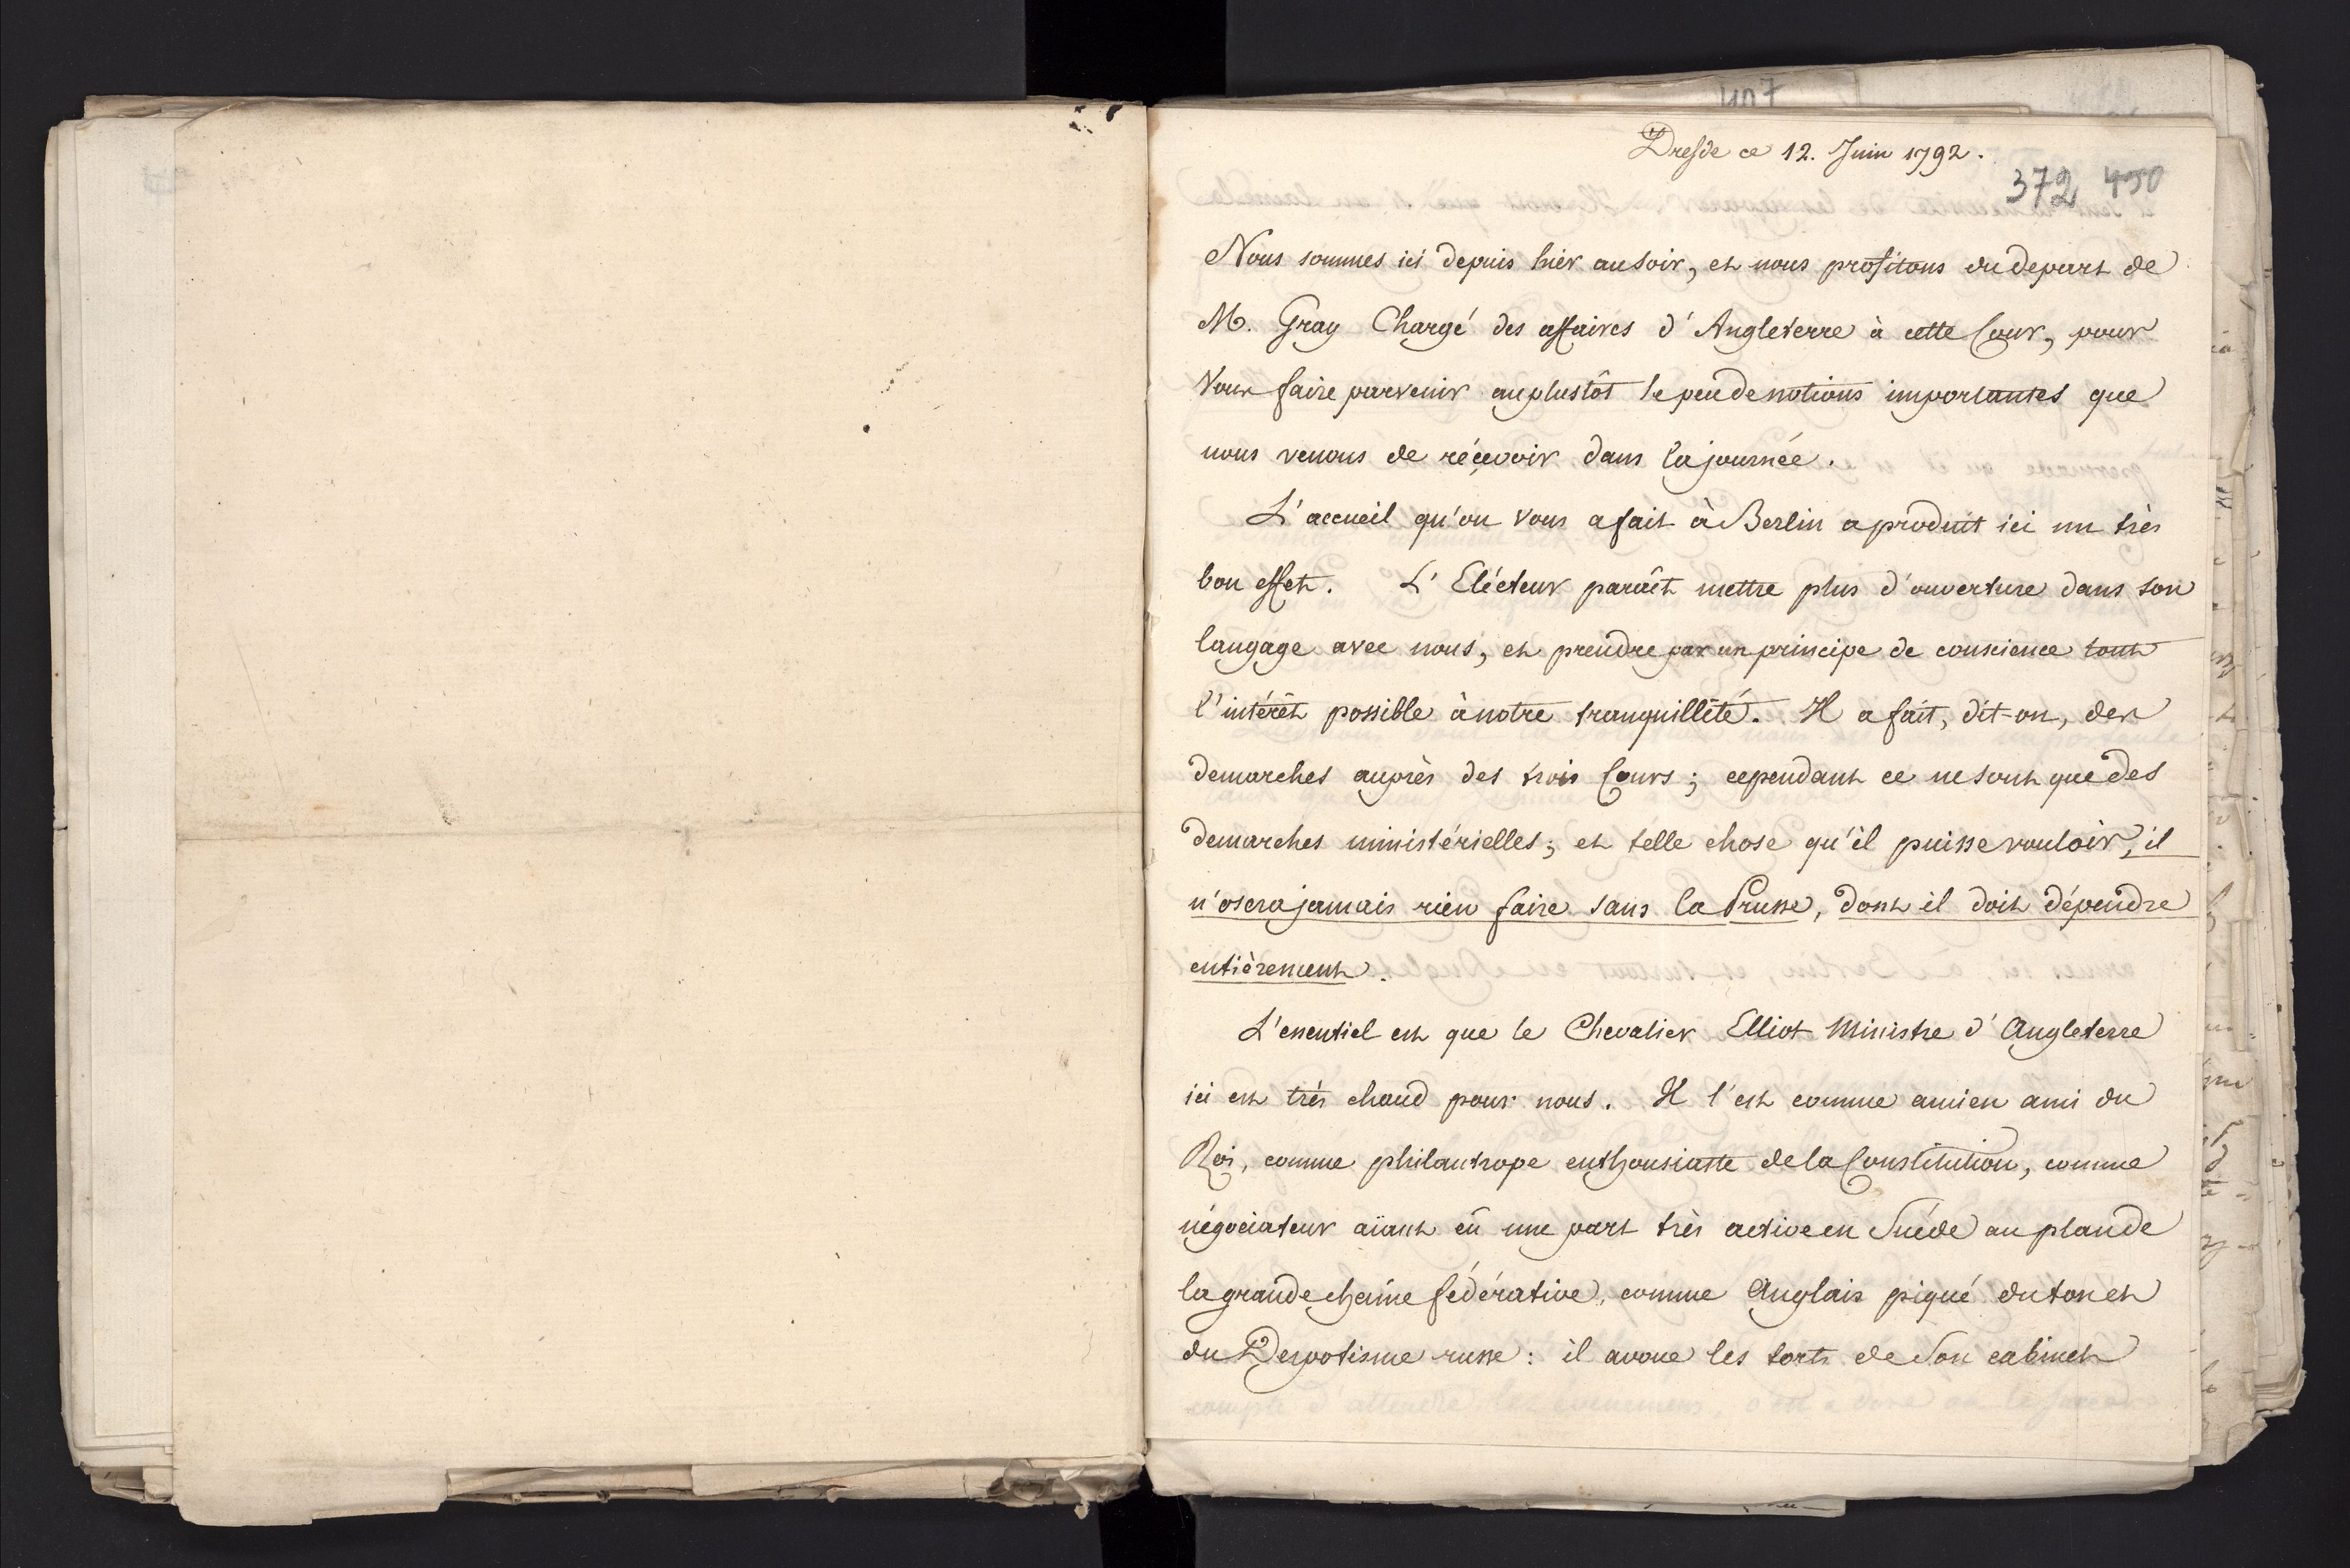 407
Dresde ce 12. Juin 1792.
372 450
Nous sommes ici depuis hier au soir, et nous profitons du depart de
M. Gray Chargé des affaires d'Angleterre à cette Cour, pour
Vous faire parvenir au plustôt le peu de notions importantes que
nous venons de réçevoir dans la journée.
L'accueil qu'on vous a fait à Berlin a produit ici un très
bon effet. L'Elécteur paroît mettre plus d'ouverture dans son
langage avec nous, et prendre par un principe de conscience tout
l'intérêt possible à notre tranquillité. Il a fait, dit-on, des
demarches auprès des trois Cours; cependant ce ne sont que des
demarches ministérielles; et telle chose qu'il puisse vouloir, il
n'osera jamais rien faire sans la Prusse, dont il doit dépendre
entièrement.
L'essentiel est que le Chevalier Elliot Ministre d'Angleterre
ici est très chaud pour nous. Il l'est comme ancien ami du
Roi, comme philantrope enthousiaste de la Constitution, comme
négociateur aïant eû une part très active en Suéde au plan de
la grande chaine fédérative, comme Anglais piqué du ton et
du Despotisme russe: il avoue les torts de Son cabinet